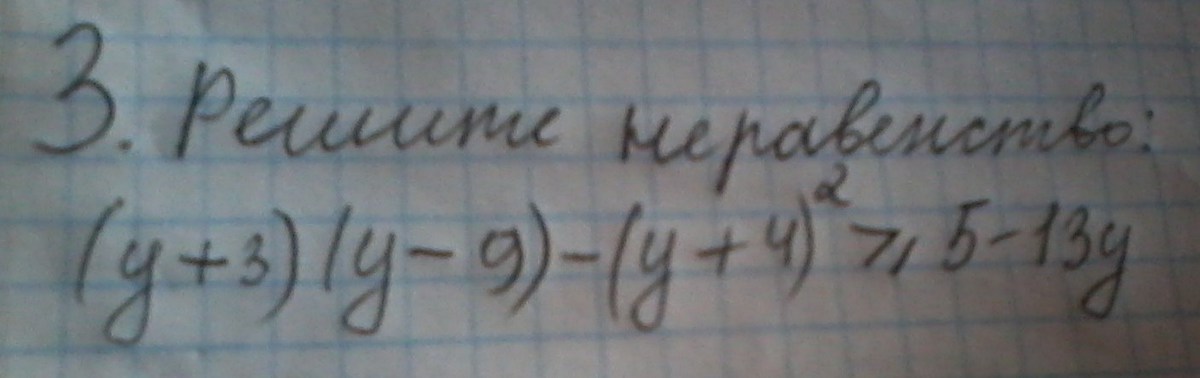 3. Решите неравенство:
(y+3)(y-9)-(y+4)² ⩾ 5-13y